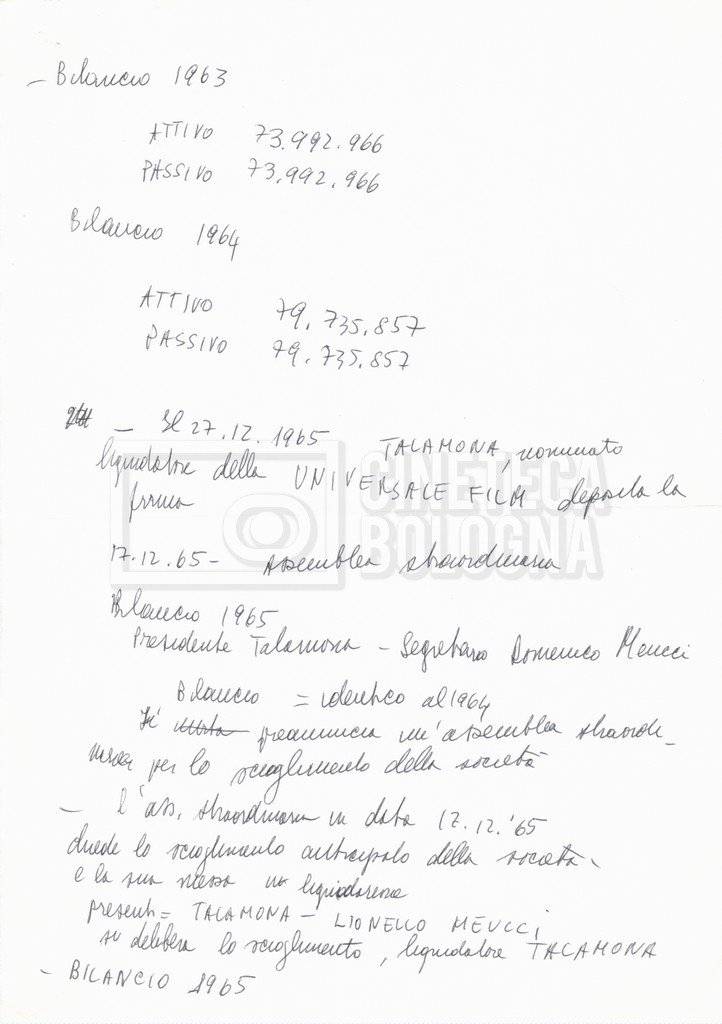 – Bilancio 1963
ATTIVO 73.992.966
PASSIVO 73.992.966
Bilancio 1964
ATTIVO 79.735.857
PASSIVO 79.735.857
– Il 27.12.1965 TALAMONA, nominato
liquidatore della UNIVERSALE FILM deposita la
firma
CINETECA
BOLOGNA
17.12.65 – Assemblea straordinaria
Bilancio 1965
Presidente Talamona – Segretario Domenico Meucci
Bilancio = identico al 1964
Si preannuncia un'assemblea straordi-
naria per lo scioglimento della società
– L'ass. straordinaria in data 17.12.'65
chiede lo scioglimento anticipato della società
e la sua messa in liquidazione
presenti = TALAMONA – LIONELLO MEUCCI
si delibera lo scioglimento, liquidatore TALAMONA
– BILANCIO 1965